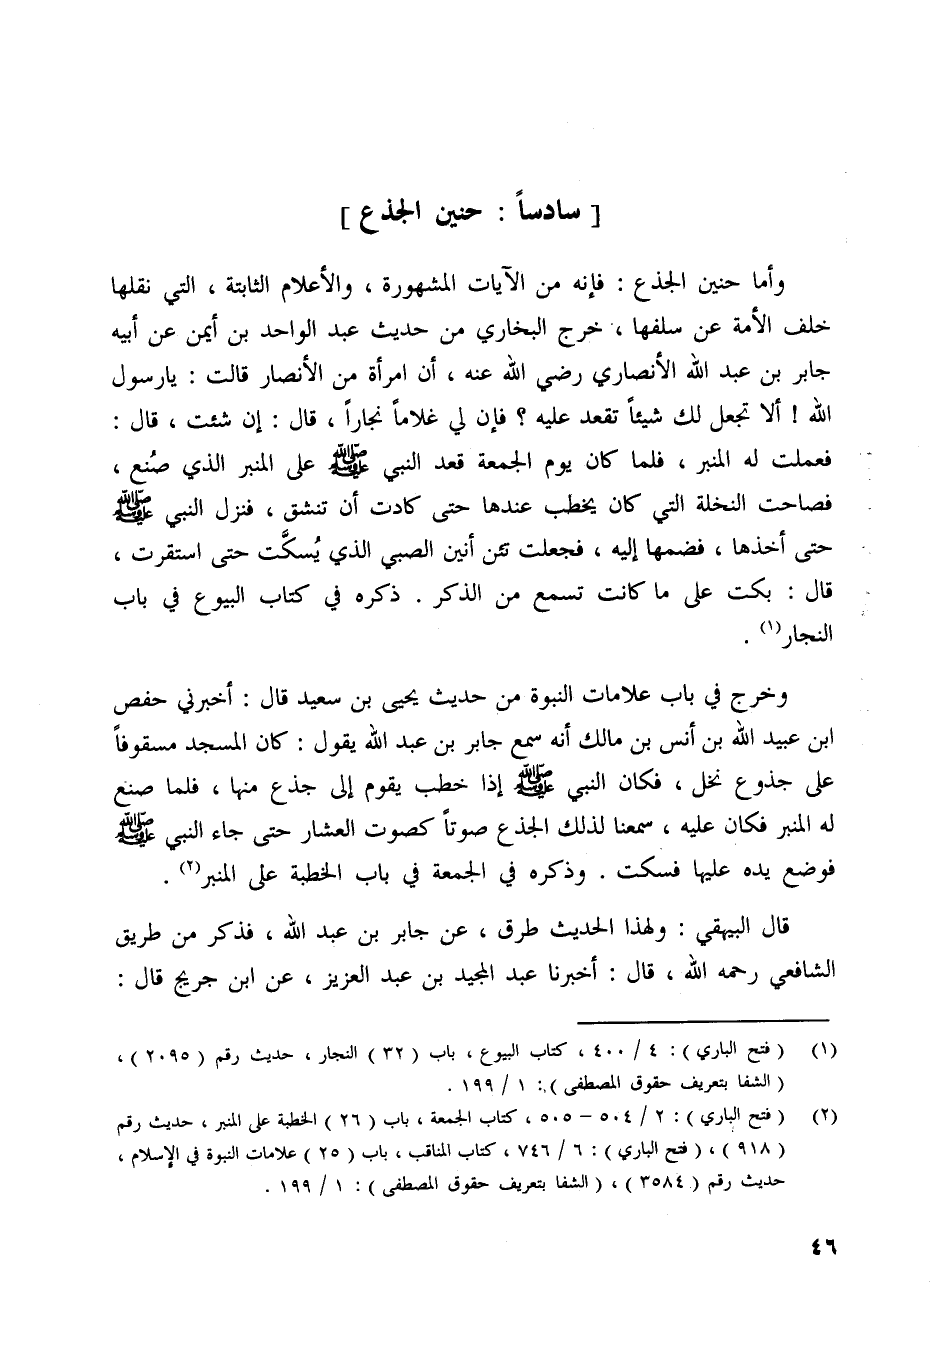 [ سادساً : حنين الجذع ]
وأما حنين الجذع : فإنه من الآيات المشهورة ، والأعلام الثابتة ، التي نقلها
خلف الأمة عن سلفها ، خرج البخاري من حديث عبد الواحد بن أيمن عن أبيه
جابر بن عبد الله الأنصاري رضي الله عنه ، أن امرأة من الأنصار قالت : يارسول
الله ! ألا تجعل لك شيئاً تقعد عليه ؟ فإن لي غلاماً نجاراً ، قال : إن شئت ، قال :
فعملت له المنبر ، فلما كان يوم الجمعة قعد النبي ﷺ على المنبر الذي صُنع ،
فصاحت النخلة التي كان يخطب عندها حتى كادت أن تنشق ، فنزل النبي ﷺ
حتى أخذها ، فضمها إليه ، فجعلت تئن أنين الصبي الذي يُسكَّت حتى استقرت ،
قال : بكت على ما كانت تسمع من الذكر . ذكره في كتاب البيوع في باب
النجار(١) .
وخرج في باب علامات النبوة من حديث يحيى بن سعيد قال : أخبرني حفص
ابن عبيد الله بن أنس بن مالك أنه سمع جابر بن عبد الله يقول : كان المسجد مسقوفاً
على جذوع نخل ، فكان النبي ﷺ إذا خطب يقوم إلى جذع منها ، فلما صنع
له المنبر فكان عليه ، سمعنا لذلك الجذع صوتاً كصوت العشار حتى جاء النبي ﷺ
فوضع يده عليها فسكت . وذكره في الجمعة في باب الخطبة على المنبر(٢) .
قال البيهقي : ولهذا الحديث طرق ، عن جابر بن عبد الله ، فذكر من طريق
الشافعي رحمه الله ، قال : أخبرنا عبد المجيد بن عبد العزيز ، عن ابن جريج قال :
(١) ( فتح الباري ) : ٤ / ٤٠٠ ، كتاب البيوع ، باب ( ٣٢ ) النجار ، حديث رقم ( ٢٠٩٥ ) ،
( الشفا بتعريف حقوق المصطفى ) : ١ / ١٩٩ .
(٢) ( فتح الباري ) : ٢ / ٥٠٤ – ٥٠٥ ، كتاب الجمعة ، باب ( ٢٦ ) الخطبة على المنبر ، حديث رقم
( ٩١٨ ) ، ( فتح الباري ) : ٦ / ٧٤٦ ، كتاب المناقب ، باب ( ٢٥ ) علامات النبوة في الإسلام ،
حديث رقم ( ٣٥٨٤ ) ، ( الشفا بتعريف حقوق المصطفى ) : ١ / ١٩٩ .
٤٦